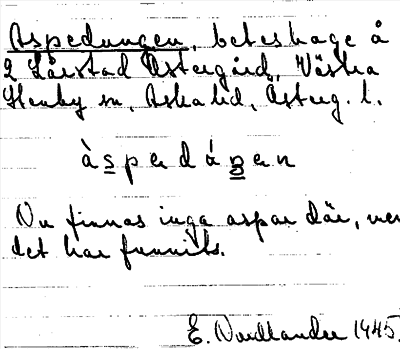 Aspedungen, beteshage å
2 Lårstad Östergård, Västra
Stenby sn, Aska hd, Österg. l.
àspadáŋen
Nu finnas inga aspar där, men
det har funnits.
E. Nordlander 1945.